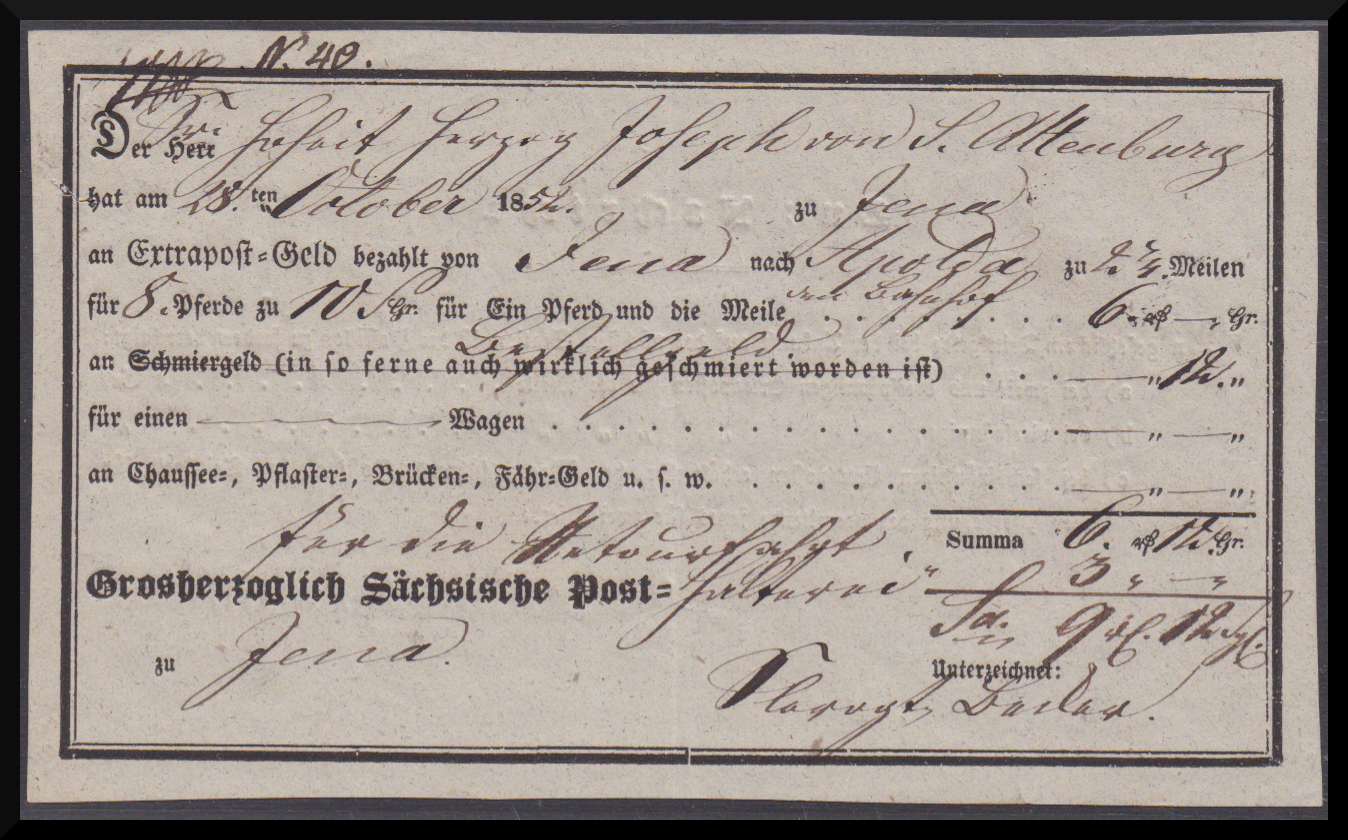 N. 40.
Der Herr Hoheit Herzog Joseph von S. Altenburg
hat am 28.ten October 1852. zu Jena
an Extrapoſt-Geld bezahlt von Jena nach Apolda zu 2 1/4. Meilen
den Bahnhof
für 8. Pferde zu 10 SGr. für Ein Pferd und die Meile . . . . . . . . 6. rß — „ Gr.
Beſtellgeld
an Schmiergeld (in ſo ferne auch wirklich geſchmiert worden iſt) . . . — „ 12. „
für einen — Wagen . . . . . . . . . . . . . . . — „ — „
an Chauſſee-, Pflaſter-, Brücken-, Fähr-Geld u. ſ. w. . . . . . . . . . . — „ — „
Summa 6. rß 12. Gr.
für die Retourfahrt 3 „ — „
Grosherzoglich Sächsische Post-halterei
Sa. 9 12
zu Jena.
Unterzeichnet: